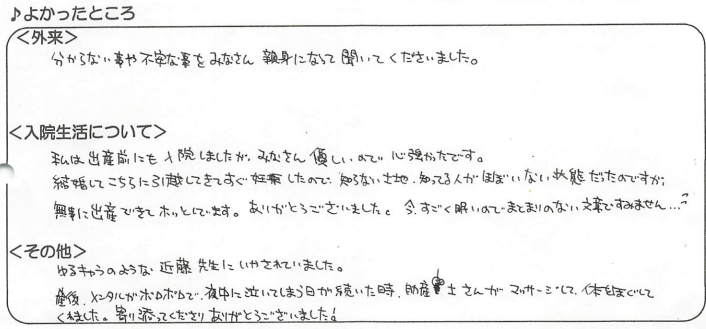 ♪よかったところ
＜外来＞
分からない事や不安な事をみなさん親身になって聞いてくださいました。
＜入院生活について＞
私は出産前にも入院しましたが、みなさん優しいので心強かったです。
結婚してこちらに引越してきてすぐ妊娠したので、知らない土地、知ってる人がほぼいない状態だったのですが、
無事に出産できてホッとしています。ありがとうございました。今、すごく眠いのでまとまりのない文章ですみません…
＜その他＞
ゆるキャラのような近藤先生にいやされていました。
産後、メンタルがボロボロで、夜中に泣いてしまう日が続いた時、助産士さんがマッサージして、体をほぐして
くれました。寄り添ってくださりありがとうございました！